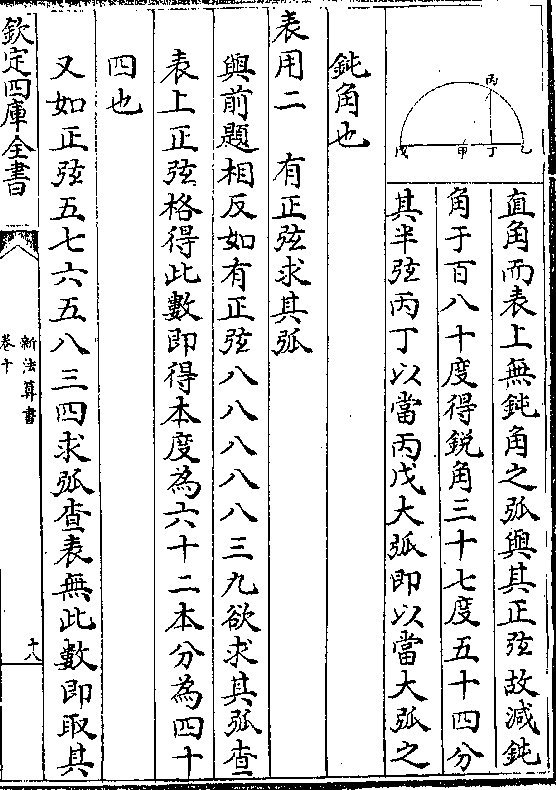 丙
戊 甲 丁 乙
直角而表上無鈍角之弧與其正弦故減鈍
角于百八十度得鋭角三十七度五十四分
其半弦丙丁以當丙戊大弧即以當大弧之
鈍角也
表用二 有正弦求其弧
與前題相反如有正弦八八八八八三九欲求其弧查
表上正弦格得此數即得本度為六十二本分為四十
四也
又如正弦五七六五八三四求弧查表無此數即取其
欽定四庫全書
新法算書
卷十
十八